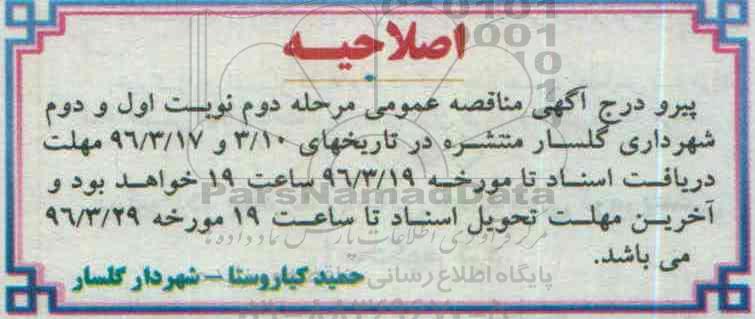 اصلاحیه
پیرو درج آگهی مناقصه عمومی مرحله دوم نوبت اول و دوم
شهرداری گلسار منتشره در تاریخهای ۳/۱۰ و ۹۶/۳/۱۷ مهلت
دریافت اسناد تا مورخه ۹۶/۳/۱۹ ساعت ۱۹ خواهد بود و
ParsNamadData
آخرین مهلت تحویل اسناد تا ساعت ۱۹ مورخه ۹۶/۳/۲۹
می باشد.
حمید کیاروستا - شهردار گلسار
پایگاه اطلاع رسانی